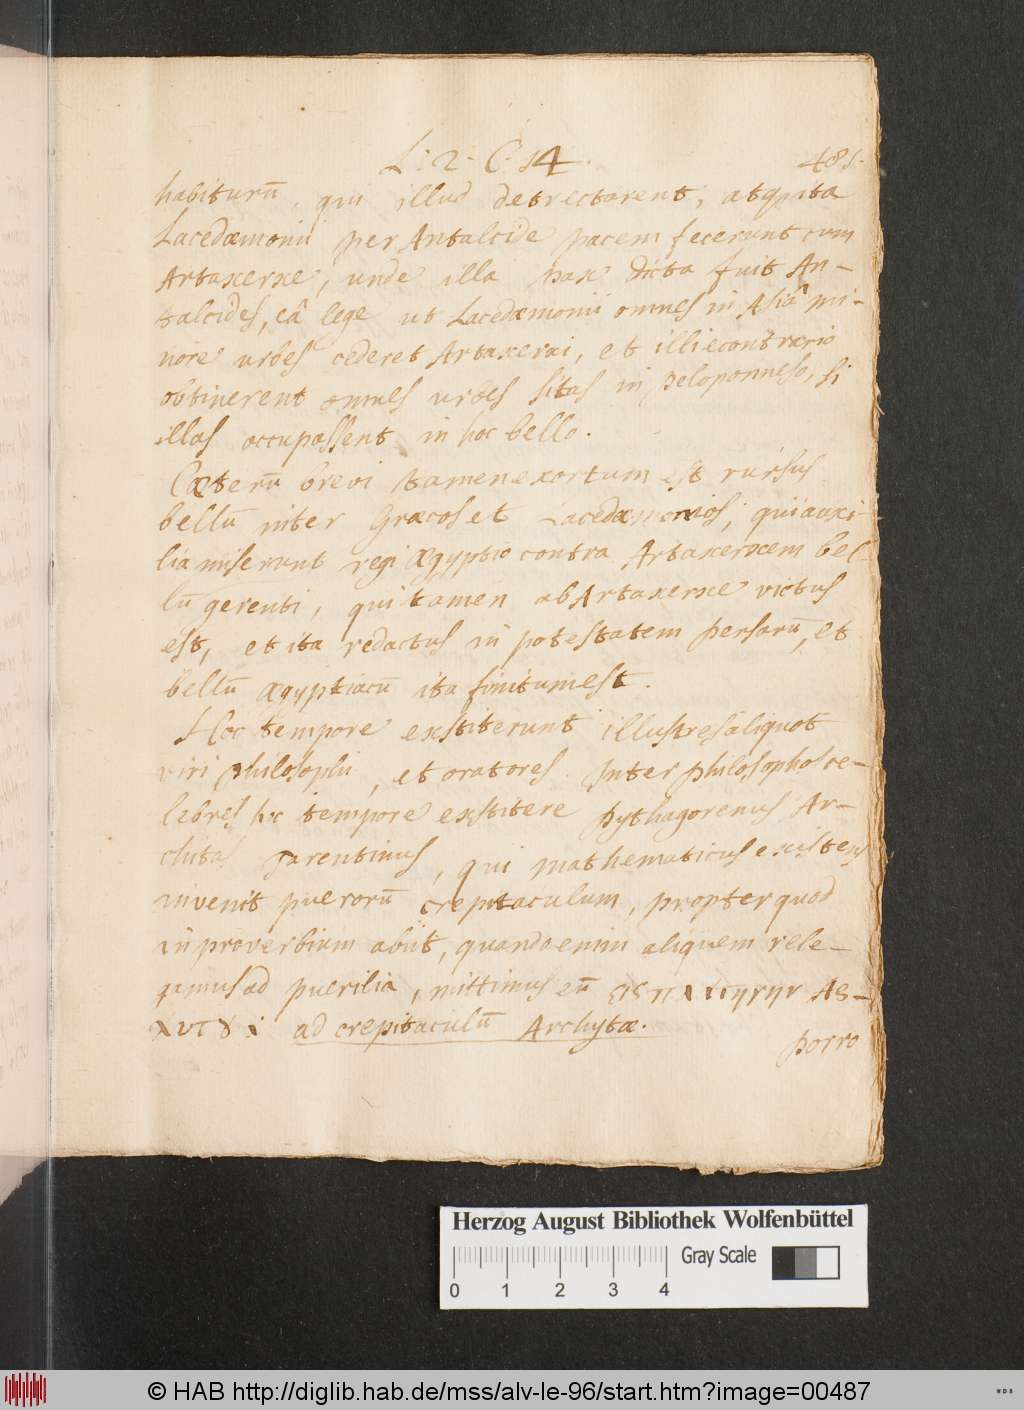 L. 2. C. 14. 481.
habiturū, qui illud detrectarent, atq; ita
Lacedæmonii per Antalcide pacem fecerunt cum
Artaxerxe, unde illa pax dicta fuit An-
talcides, eâ lege ut Lacedæmonii omnes in Asiâ mi-
nore urbes cederet Artaxerxi, et illi econtrario
obtinerent omnes urbes sitas in Peloponneso, si
illas occupassent in hoc bello.
Cæterū brevi tamen exortum est rursus
bellū inter Græcos et Lacedæmonios, qui auxi-
lia miserunt regi Ægyptio contra Artaxerxem bel-
lū gerenti, qui tamen ab Artaxerxe victus
est, et ita redactus in potestatem Persarū, et
bellū ægyptiacū ita finitum est.
Hoc tempore exstiterunt illustres aliquot
viri philosophi, et oratores. Inter philosophos ce-
lebres hc tempore exstitere Pythagorenus Ar-
chitas Tarentinus, qui mathematicus existens
invenit puerorū crepitaculum, propter quod
in proverbium abiit, quando enim aliquem rele-
gamus ad puerilia, mittimus eū
ad crepitaculū Archytæ.
Porro
Herzog August Bibliothek Wolfenbüttel
Gray Scale
0 1 2 3 4
© HAB http://diglib.hab.de/mss/alv-le-96/start.htm?image=00487